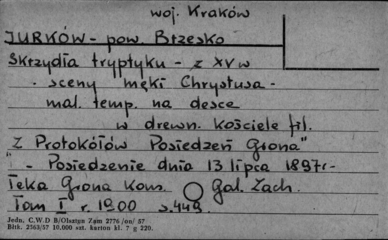 woj. Kraków
JURKÓW - pow. Brzesko
Skrzydła tryptyku - z XV w
- sceny męki Chrystusa -
mal. temp. na desce
w drewn. kościele fil.
Z Protokółów Posiedzeń Grona"
" - Posiedzenie dnia 13 lipca 1897r -
Teka Grona Kons. Gal. Zach.
Tom I r. 1900 s.449.
Jedn. C.W.D B/Olsztyn Zam 2776/on/57
Bltk. 2563/57 10,000 szt. karton kl. 7 g 220.